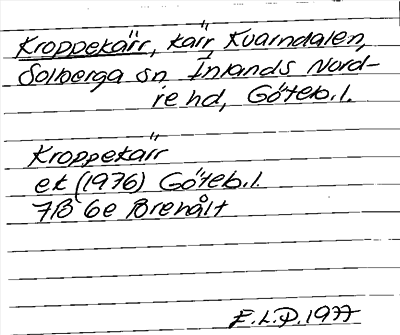 Kroppekärr, kärr, Kvarndalen,
Solberga sn Inlands Nord-
re hd, Göteb.l.
Kroppekärr
ek (1976) Göteb.l.
7B 6e Brehålt
E.L.P. 1977